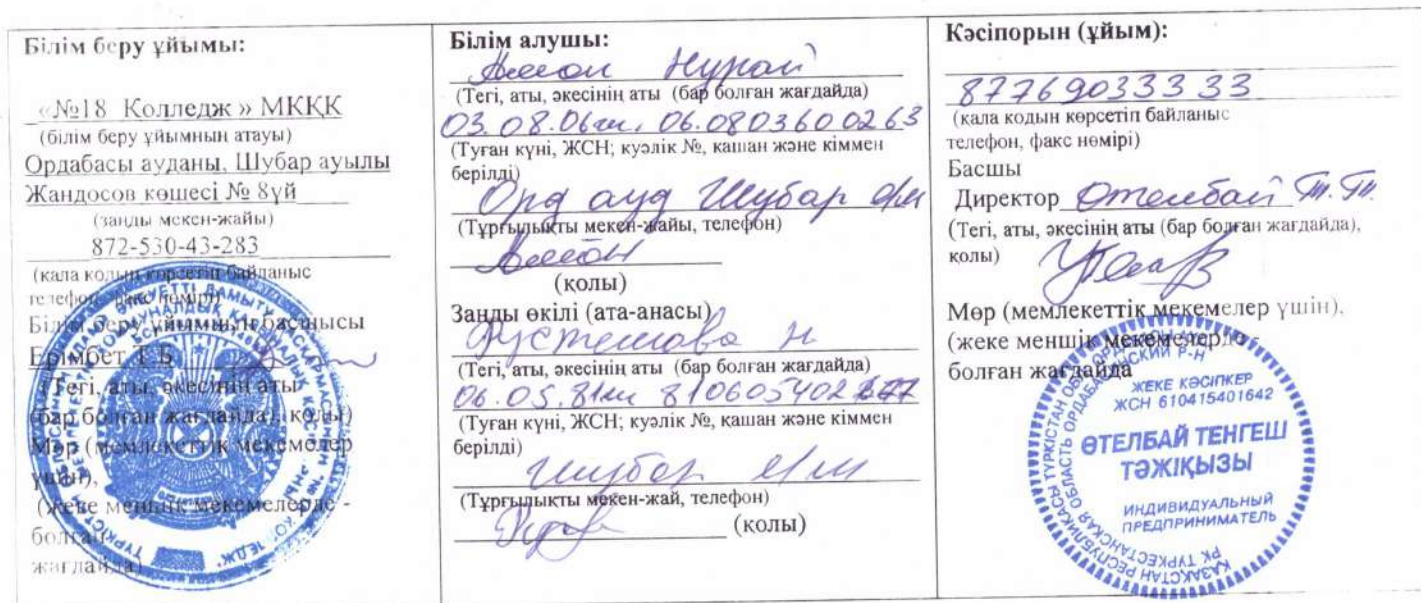 Білім беру ұйымы:
«№18 Колледж » МКҚК
(білім беру ұйымнын атауы)
Ордабасы ауданы, Шубар ауылы
Жандосов көшесі № 8үй
(занды мекен-жайы)
872-530-43-283
(кала кодын көрсетіп байланыс
телефон, факс нөмірі)
Білім беру ұйымнын басшысы
Ерімбет Т.Б
(Тегі, аты, әкесінің аты
(бар болған жағдайда), қолы)
Мөр (мемлекеттік мекемелер
үшін),
(жеке меншік мекемелерде -
болған
жағдайда)
Білім алушы:
Нұрай
(Тегі, аты, әкесінің аты (бар болған жағдайда)
03.08.06 06.0803600263
(Туған күні, ЖСН; куәлік №, кашан және кіммен
берілді)
Орд ауд Шубар а/м
(Тұрғылықты мекен-жайы, телефон)
(колы)
Занды өкілі (ата-анасы)
Рустемова Н
(Тегі, аты, әкесінің аты (бар болған жағдайда)
06.05.81 810605402
(Туған күні, ЖСН; куәлік №, кашан және кіммен
берілді)
Шубар а/м
(Тұрғылықты мекен-жай, телефон)
(колы)
Кәсіпорын (ұйым):
87769033333
(кала кодын көрсетіп байланыс
телефон, факс нөмірі)
Басшы
Директор Өтелбай Т.Т.
(Тегі, аты, әкесінің аты (бар болған жағдайда),
қолы)
Мөр (мемлекеттік мекемелер үшін),
(жеке меншік мекемелерде
болған жағдайда
ЖЕКЕ КӘСІПКЕР
ЖСН 610415401642
ӨТЕЛБАЙ ТЕНГЕШ
ТӘЖІҚЫЗЫ
ИНДИВИДУАЛЬНЫЙ
ПРЕДПРИНИМАТЕЛЬ